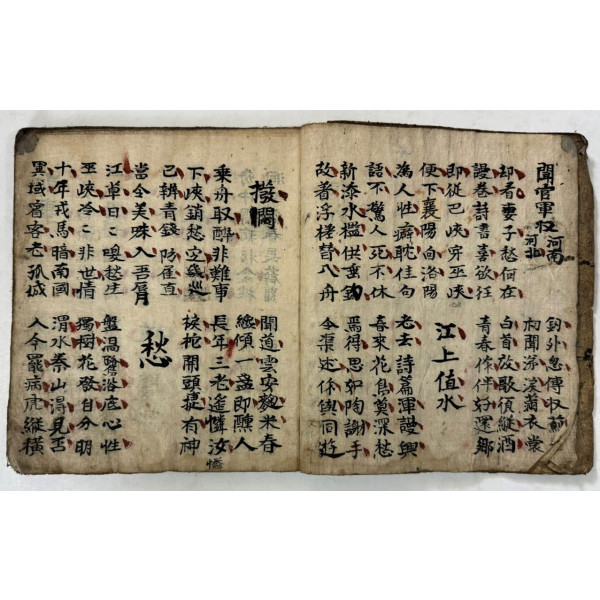 聞官軍収河南河北
釰外忽傳収薊
初聞涕淚滿衣裳
却看妻子愁何在
白首放歌須縱酒
謾卷詩書喜欲狂
青春作伴好還鄉
即從巴峽穿巫峽
便下襄陽向洛陽
江上值水
為人性癖耽佳句
老去詩篇渾謾興
語不驚人死不休
春來花鳥莫深愁
新添水檻供垂釣
焉得思如陶謝手
故着浮槎替入舟
令渠述作與同遊
撥悶
聞道雲安麴米春
總傾一盞即醺人
乘舟取醉非難事
長年三老遙憐汝
憐
下峽銷愁定幾巡
捩柁開頭捷有神
已辨青錢防雇直
當令美味入吾唇
愁
江草日日喚愁生
盤渦鷺浴底心性
巫峽泠泠非世情
獨樹花發自分明
十年戎馬暗南國
渭水秦山得見否
異域賓客老孤城
人今罷病虎縱橫